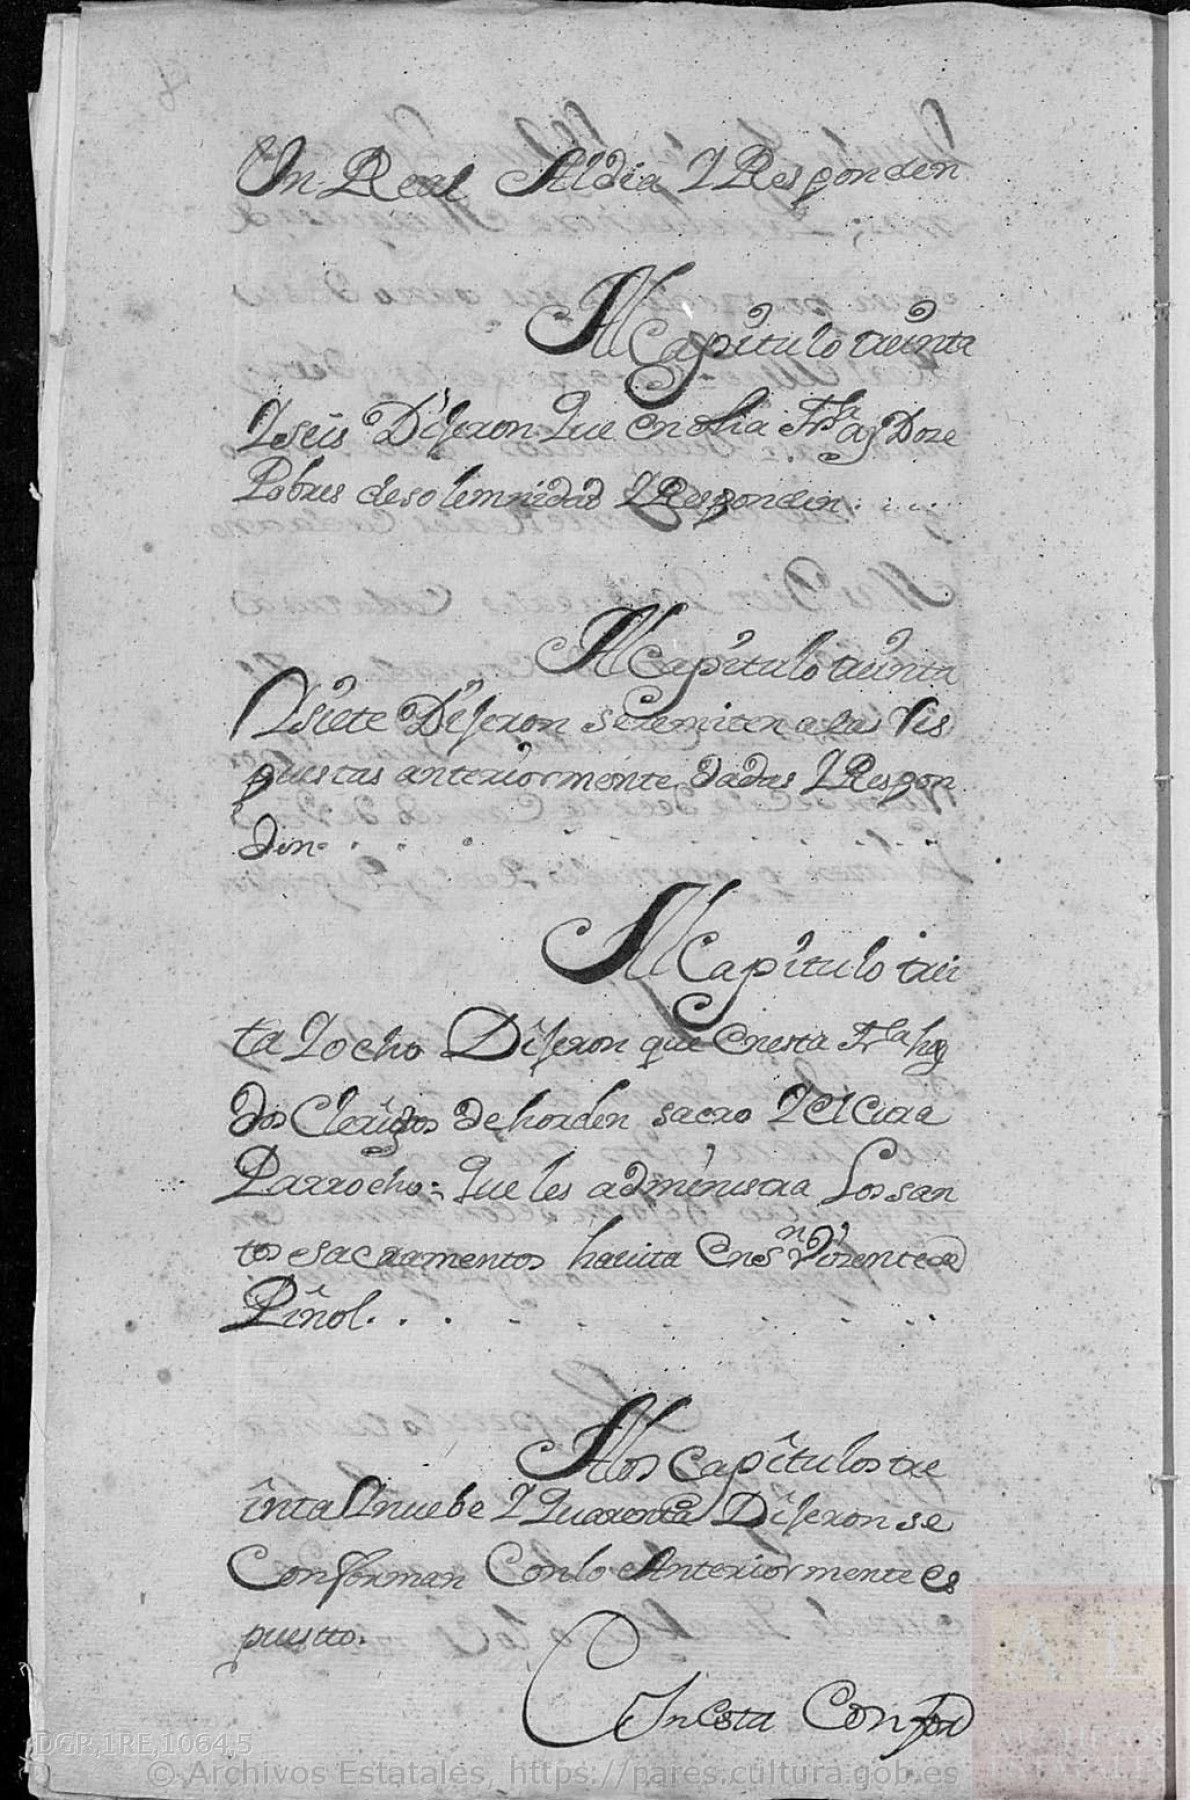 Un Real Al dia Y Responden
Al Capitulo treinta
Y seis Dijeron Que en dha Fra ay Doze
Pobres de solemnidad Y Responden . . . .
Al Capitulo treinta
Y siete Dijeron se remiten a las Res
puestas anteriormente dadas Y Respon
den . . . . . . . . . .
Al Capitulo trei
ta Y ocho Dijeron que en esta Fra hay
dos Clerigos de horden sacro Y el Cura
Parrocho: Que les administra Los san
tos esacramentos havita en Sn Vizente de
Piñol . . . . . . . . . .
A los Capitulos tre
inta Y nuebe Y Quarenta Dijeron se
Conforman Con lo Anteriormente es
puestto.
En esta Confor
DGP,1RE,1064,5
© Archivos Estatales, https://pares.cultura.gob.es